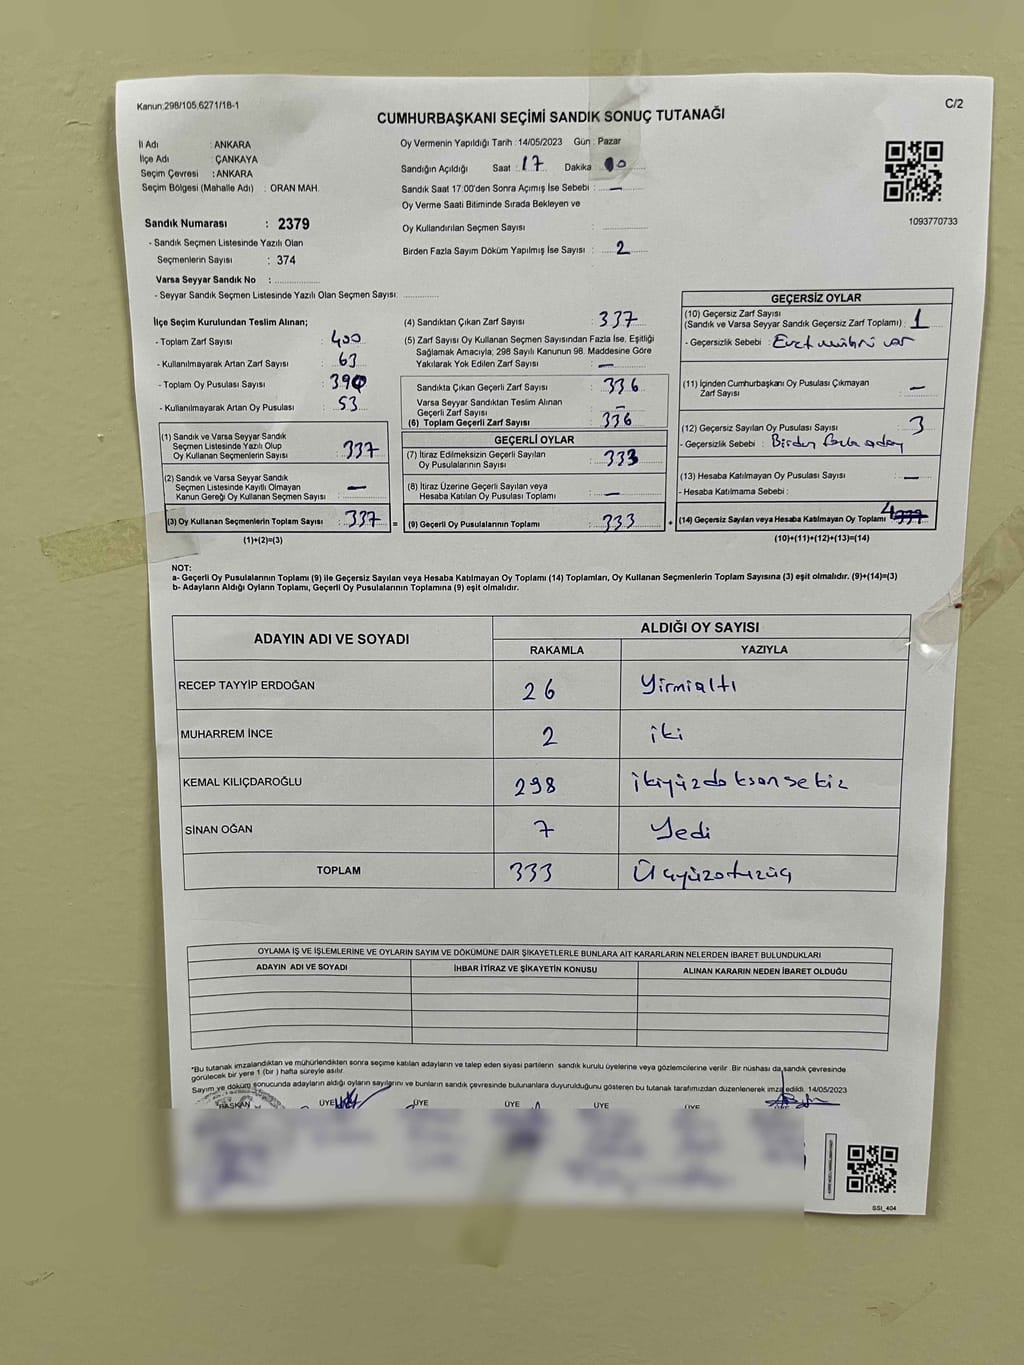 Kanun:298/105,6271/18-1
C/2
CUMHURBAŞKANI SEÇİMİ SANDIK SONUÇ TUTANAĞI
İl Adı : ANKARA
İlçe Adı : ÇANKAYA
Seçim Çevresi : ANKARA
Seçim Bölgesi (Mahalle Adı) : ORAN MAH.
Oy Vermenin Yapıldığı Tarih : 14/05/2023 Gün : Pazar
Sandığın Açıldığı Saat : 17 Dakika
Sandık Saat 17:00'den Sonra Açımış İse Sebebi : —
Oy Verme Saati Bitiminde Sırada Bekleyen ve
Oy Kullandırılan Seçmen Sayısı :
Birden Fazla Sayım Döküm Yapılmış İse Sayısı : 2
1093770733
Sandık Numarası : 2379
- Sandık Seçmen Listesinde Yazılı Olan
Seçmenlerin Sayısı : 374
Varsa Seyyar Sandık No :
- Seyyar Sandık Seçmen Listesinde Yazılı Olan Seçmen Sayısı:
İlçe Seçim Kurulundan Teslim Alınan;
- Toplam Zarf Sayısı : 400
- Kullanılmayarak Artan Zarf Sayısı : 63
- Toplam Oy Pusulası Sayısı : 390
- Kullanılmayarak Artan Oy Pusulası : 53
(1) Sandık ve Varsa Seyyar Sandık
Seçmen Listesinde Yazılı Olup
Oy Kullanan Seçmenlerin Sayısı : 337
(2) Sandık ve Varsa Seyyar Sandık
Seçmen Listesinde Kayıtlı Olmayan
Kanun Gereği Oy Kullanan Seçmen Sayısı : —
(3) Oy Kullanan Seçmenlerin Toplam Sayısı : 337 =
(1)+(2)=(3)
(4) Sandıktan Çıkan Zarf Sayısı : 337
(5) Zarf Sayısı Oy Kullanan Seçmen Sayısından Fazla İse, Eşitliği
Sağlamak Amacıyla, 298 Sayılı Kanunun 98. Maddesine Göre
Yakılarak Yok Edilen Zarf Sayısı : —
Sandıkta Çıkan Geçerli Zarf Sayısı : 336
Varsa Seyyar Sandıktan Teslim Alınan
Geçerli Zarf Sayısı : —
(6) Toplam Geçerli Zarf Sayısı : 336
GEÇERLİ OYLAR
(7) İtiraz Edilmeksizin Geçerli Sayılan
Oy Pusulalarının Sayısı : 333
(8) İtiraz Üzerine Geçerli Sayılan veya
Hesaba Katılan Oy Pusulası Toplamı : —
(9) Geçerli Oy Pusulalarının Toplamı : 333 +
GEÇERSİZ OYLAR
(10) Geçersiz Zarf Sayısı
(Sandık ve Varsa Seyyar Sandık Geçersiz Zarf Toplamı) : 1
- Geçersizlik Sebebi : Evet mührü var
(11) İçinden Cumhurbaşkanı Oy Pusulası Çıkmayan
Zarf Sayısı : —
(12) Geçersiz Sayılan Oy Pusulası Sayısı : 3
- Geçersizlik Sebebi : Birden fazla aday
(13) Hesaba Katılmayan Oy Pusulası Sayısı : —
- Hesaba Katılmama Sebebi :
(14) Geçersiz Sayılan veya Hesaba Katılmayan Oy Toplamı 4 337
(10)+(11)+(12)+(13)=(14)
NOT:
a- Geçerli Oy Pusulalarının Toplamı (9) ile Geçersiz Sayılan veya Hesaba Katılmayan Oy Toplamı (14) Toplamları, Oy Kullanan Seçmenlerin Toplam Sayısına (3) eşit olmalıdır. (9)+(14)=(3)
b- Adayların Aldığı Oyların Toplamı, Geçerli Oy Pusulalarının Toplamına (9) eşit olmalıdır.
ADAYIN ADI VE SOYADI
ALDIĞI OY SAYISI
RAKAMLA YAZIYLA
RECEP TAYYİP ERDOĞAN 26 Yirmialtı
MUHARREM İNCE 2 iki
KEMAL KILIÇDAROĞLU 298 ikiyüzdoksansekiz
SİNAN OĞAN 7 Yedi
TOPLAM 333 Üçyüzotuzüç
OYLAMA İŞ VE İŞLEMLERİNE VE OYLARIN SAYIM VE DÖKÜMÜNE DAİR ŞİKAYETLERLE BUNLARA AİT KARARLARIN NELERDEN İBARET BULUNDUKLARI
ADAYIN ADI VE SOYADI İHBAR İTİRAZ VE ŞİKAYETİN KONUSU ALINAN KARARIN NEDEN İBARET OLDUĞU
*Bu tutanak imzalandıktan ve mühürlendikten sonra seçime katılan adayların ve talep eden siyasi partilerin sandık kurulu üyelerine veya gözlemcilerine verilir. Bir nüshası da sandık çevresinde
görülecek bir yere 1 (bir) hafta süreyle asılır.
Sayım ve döküm sonucunda adayların aldığı oyların sayılarını ve bunların sandık çevresinde bulunanlara duyurulduğunu gösteren bu tutanak tarafımızdan düzenlenerek imza edildi. 14/05/2023
BAŞKAN ÜYE ÜYE ÜYE ÜYE ÜYE
SSI_404